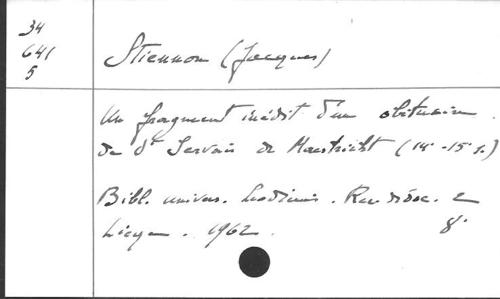 34
641
5
Stiennon (Jacques)
Un fragment inédit d'un obituaire
de St Servais de Maestricht (14e-15e s.)
Bibl. univers. Leodiensis.
Liège. 1962. 8°.